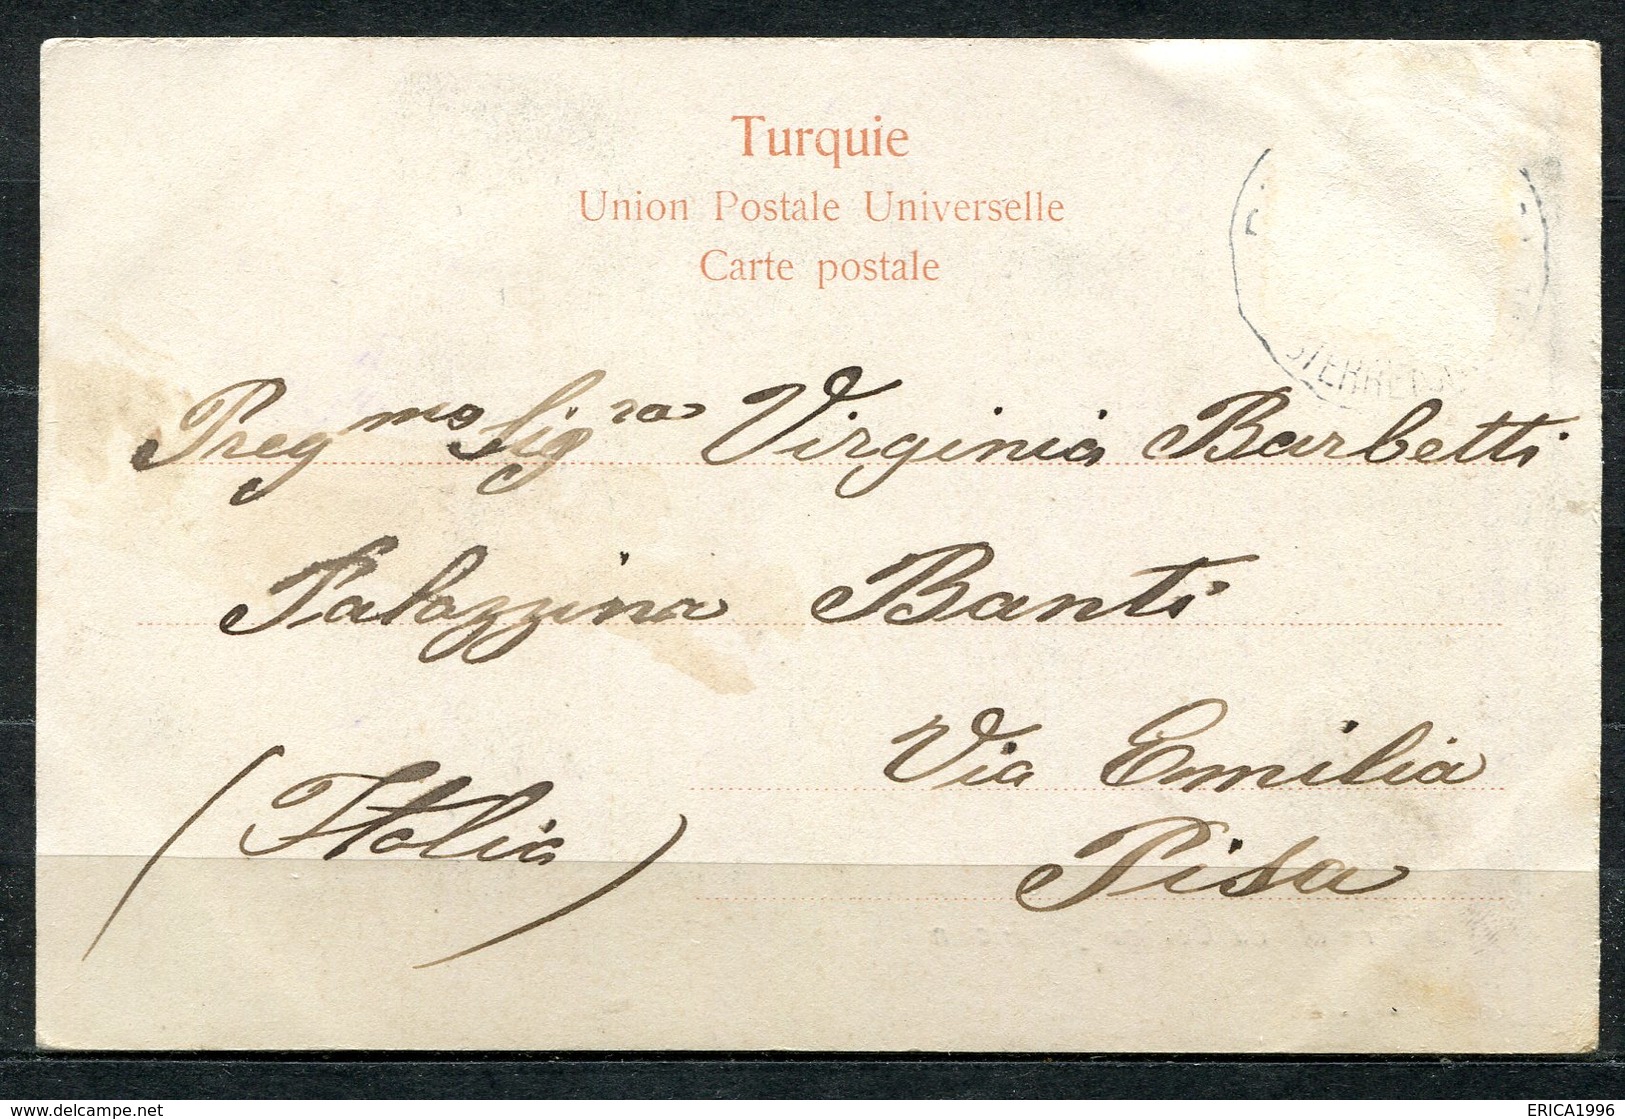 Turquie
Union Postale Universelle
Carte postale
Preg^ma Sig^ra Virginia Barbetti
Palazzina Banti
Via Emilia
(Italia) Pisa
delcampe.net
ERICA1996